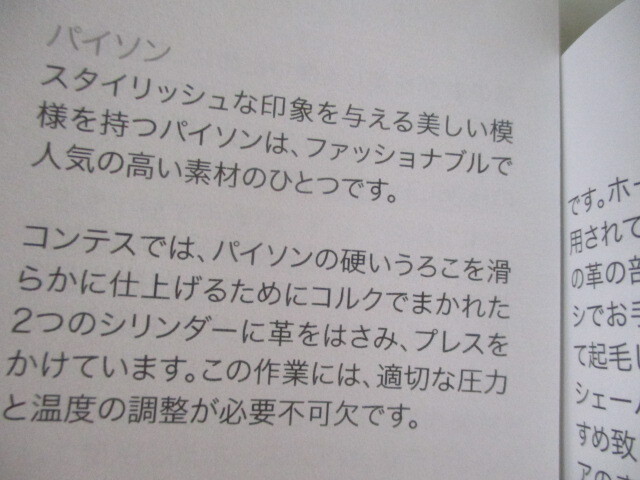 パイソン
スタイリッシュな印象を与える美しい模
様を持つパイソンは、ファッショナブルで
人気の高い素材のひとつです。
コンテスでは、パイソンの硬いうろこを滑
らかに仕上げるためにコルクでまかれた
2つのシリンダーに革をはさみ、プレスを
かけています。この作業には、適切な圧力
と温度の調整が必要不可欠です。
です。ホー
用されて
の革の部
シでお手
て起毛し
シェール
すめ致
アの